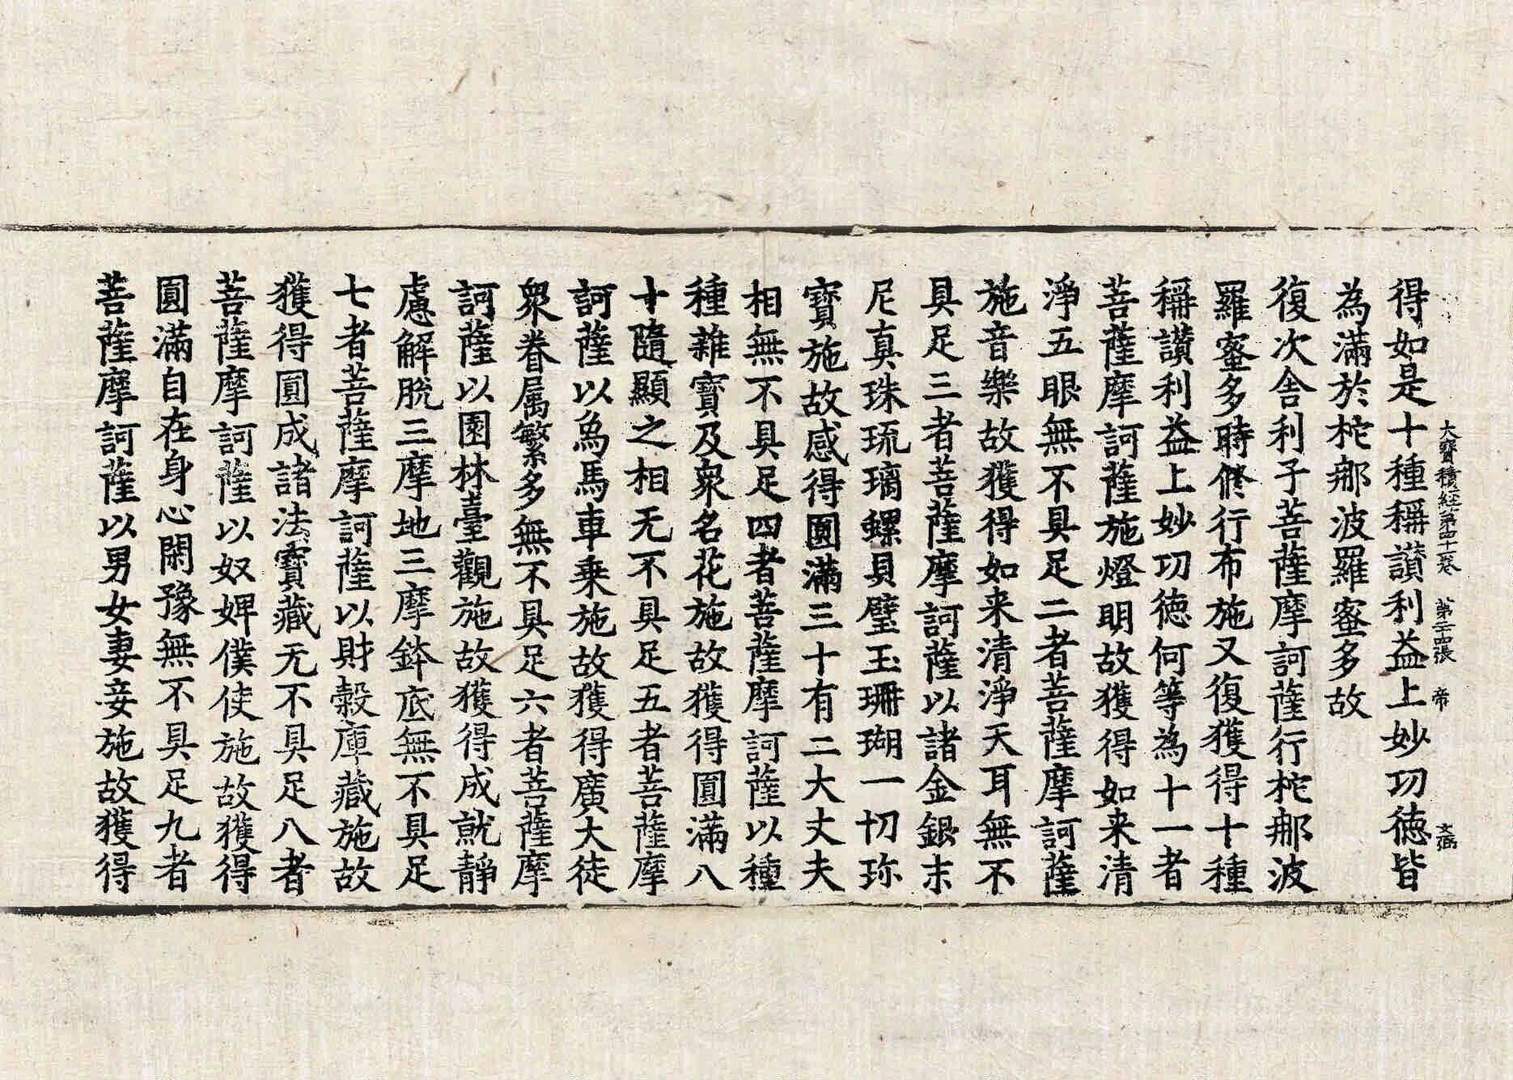 大寶積經第四十一卷 第二十四張 帝
得如是十種稱讃利益上妙功徳皆
為滿於柁𨙻波羅蜜多故
復次舍利子菩薩摩訶薩行柁𨙻波
羅蜜多時修行布施又復獲得十種
稱讃利益上妙功徳何等為十一者
菩薩摩訶薩施燈明故獲得如来清
淨五眼無不具足二者菩薩摩訶薩
施音樂故獲得如来清淨天耳無不
具足三者菩薩摩訶薩以諸金銀末
尼真珠琉璃螺貝璧玉珊瑚一切珎
寶施故感得圓滿三十有二大丈夫
相無不具足四者菩薩摩訶薩以種
種雜寶及衆名花施故獲得圓滿八
十隨顯之相无不具足五者菩薩摩
訶薩以爲馬車乗施故獲得廣大徒
衆眷属繁多無不具足六者菩薩摩
訶薩以園林臺觀施故獲得成就靜
慮解脫三摩地三摩鉢底無不具足
七者菩薩摩訶薩以財穀庫藏施故
獲得圓成諸法寶藏无不具足八者
菩薩摩訶薩以奴婢僕使施故獲得
圓滿自在身心閑豫無不具足九者
菩薩摩訶薩以男女妻妾施故獲得